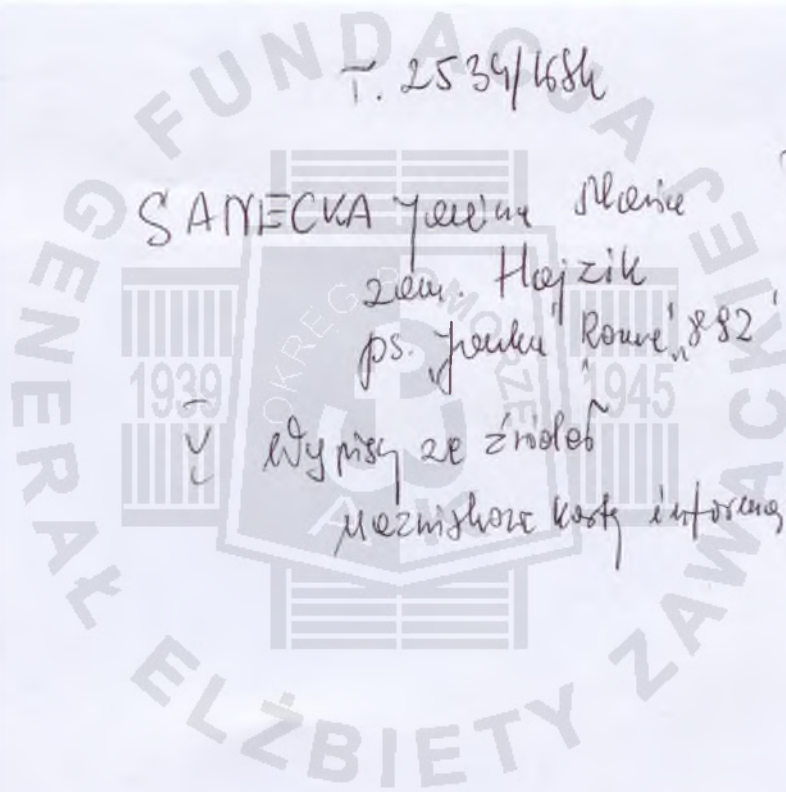 T. 2534/WSK
SANECKA Janina Maria
zam. Hajzik
ps. "Janka" "Roma" "882"
V Wypisy ze źródeł
Nazwiskowe karty informac
FUNDACJA GENERAŁ ELŻBIETY ZAWACKIEJ
OKRĘG POMORZE
1939 1945
AK